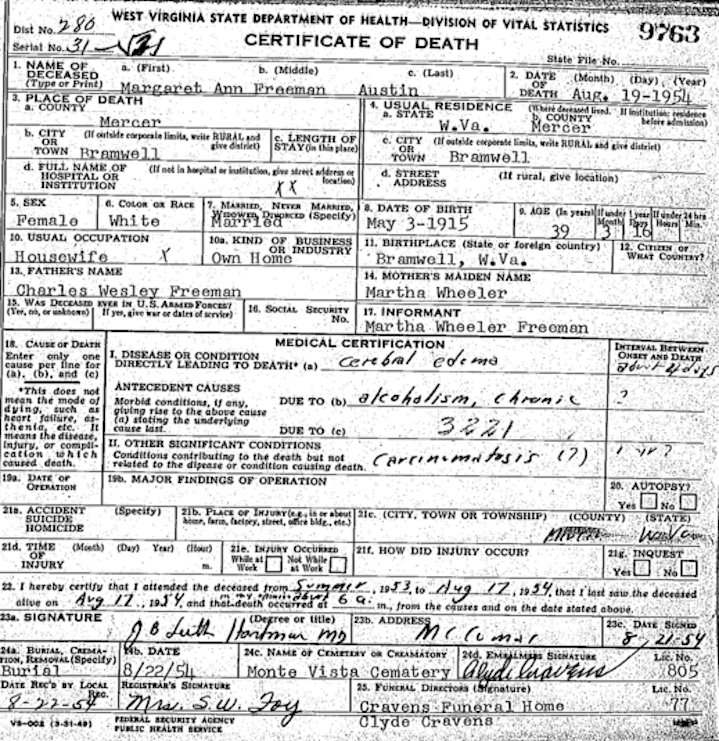 WEST VIRGINIA STATE DEPARTMENT OF HEALTH—DIVISION OF VITAL STATISTICS
9763
Dist No. 280
Serial No. 31
CERTIFICATE OF DEATH
State File No.
1. NAME OF DECEASED (Type or Print)
a. (First) b. (Middle) c. (Last)
Margaret Ann Freeman Austin
2. DATE OF DEATH (Month) (Day) (Year)
Aug. 19-1954
3. PLACE OF DEATH
a. COUNTY
Mercer
4. USUAL RESIDENCE (Where deceased lived. If institution: residence before admission)
a. STATE b. COUNTY
W.Va. Mercer
b. CITY OR TOWN (If outside corporate limits, write RURAL and give district)
Bramwell
c. LENGTH OF STAY (in this place)
c. CITY OR TOWN (If outside corporate limits, write RURAL and give district)
Bramwell
d. FULL NAME OF HOSPITAL OR INSTITUTION (If not in hospital or institution, give street address or location)
XX
d. STREET ADDRESS (If rural, give location)
5. SEX
Female
6. COLOR OR RACE
White
7. MARRIED, NEVER MARRIED, WIDOWED, DIVORCED (Specify)
Married
8. DATE OF BIRTH
May 3-1915
9. AGE (In years) If under 1 year Months Days If under 24 hrs Hours Min.
39 3 16
10. USUAL OCCUPATION
Housewife X
10a. KIND OF BUSINESS OR INDUSTRY
Own Home
11. BIRTHPLACE (State or foreign country)
Bramwell, W.Va.
12. CITIZEN OF WHAT COUNTRY?
13. FATHER'S NAME
Charles Wesley Freeman
14. MOTHER'S MAIDEN NAME
Martha Wheeler
15. WAS DECEASED EVER IN U.S. ARMED FORCES?
(Yes, no, or unknown) (If yes, give war or dates of service)
16. SOCIAL SECURITY No.
17. INFORMANT
Martha Wheeler Freeman
MEDICAL CERTIFICATION
18. CAUSE OF DEATH
Enter only one cause per line for (a), (b), and (c)
*This does not mean the mode of dying, such as heart failure, asthenia, etc. It means the disease, injury, or complication which caused death.
I. DISEASE OR CONDITION DIRECTLY LEADING TO DEATH* (a) cerebral edema
INTERVAL BETWEEN ONSET AND DEATH
ANTECEDENT CAUSES
Morbid conditions, if any, giving rise to the above cause (a) stating the underlying cause last.
DUE TO (b) alcoholism, chronic ?
DUE TO (c) 3221
II. OTHER SIGNIFICANT CONDITIONS
Conditions contributing to the death but not related to the disease or condition causing death.
Carcinomatosis (?)
19a. DATE OF OPERATION
19b. MAJOR FINDINGS OF OPERATION
20. AUTOPSY?
Yes No
21a. ACCIDENT SUICIDE HOMICIDE (Specify)
21b. PLACE OF INJURY (e.g., in or about home, farm, factory, street, office bldg., etc.)
21c. (CITY, TOWN OR TOWNSHIP) (COUNTY) (STATE)
21d. TIME OF INJURY (Month) (Day) (Year) (Hour) m.
21e. INJURY OCCURRED
While at Work Not While at Work
21f. HOW DID INJURY OCCUR?
21g. INQUEST
Yes No
22. I hereby certify that I attended the deceased from Summer, 1953, to Aug 17, 1954, that I last saw the deceased
alive on Aug 17, 1954, and that death occurred at 6 a. m., from the causes and on the date stated above.
23a. SIGNATURE (Degree or title)
MD
23b. ADDRESS
23c. DATE SIGNED
8-21-54
24a. BURIAL, CREMATION, REMOVAL (Specify)
Burial
24b. DATE
8/22/54
24c. NAME OF CEMETERY OR CREMATORY
Monte Vista Cemetery
24d. EMBALMERS SIGNATURE
Clyde Cravens
Lic. No.
805
DATE REC'D BY LOCAL REG.
8-22-54
REGISTRAR'S SIGNATURE
Mrs. S.W. Foy
25. FUNERAL DIRECTORS (Signature)
Cravens Funeral Home
Clyde Cravens
Lic. No.
77
VS-002 (3-31-49)
FEDERAL SECURITY AGENCY
PUBLIC HEALTH SERVICE